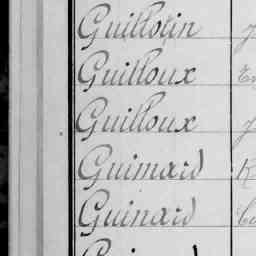 Guillotin
Guilloux
Guilloux
Guimard
Guinard